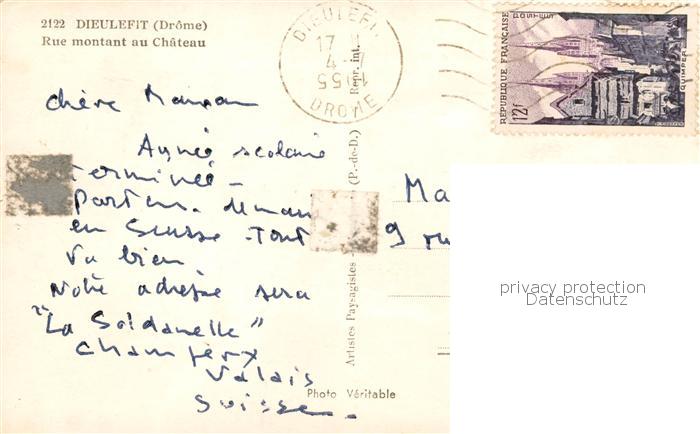 2122 DIEULEFIT (Drôme)
Rue montant au Château
DIEULEFIT
17 H
4 - 7
1955
DROME
RÉPUBLIQUE FRANÇAISE
POSTES
QUIMPER
12f
chère Maman
Année scolaire
terminée -
Partons demain
en Suisse - Tout
va bien
Notre adresse sera
"La Soldanelle"
Champex
Valais
Suisse -
Ma
9 ru
Artistes Paysagistes
(P.-de-D.)
Repr. int.
Photo Véritable
privacy protection
Datenschutz